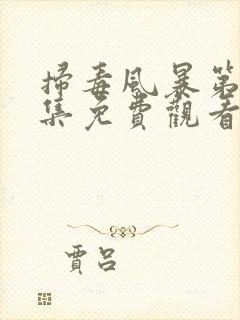 掃毒風暴第
集免費觀看
賈呂